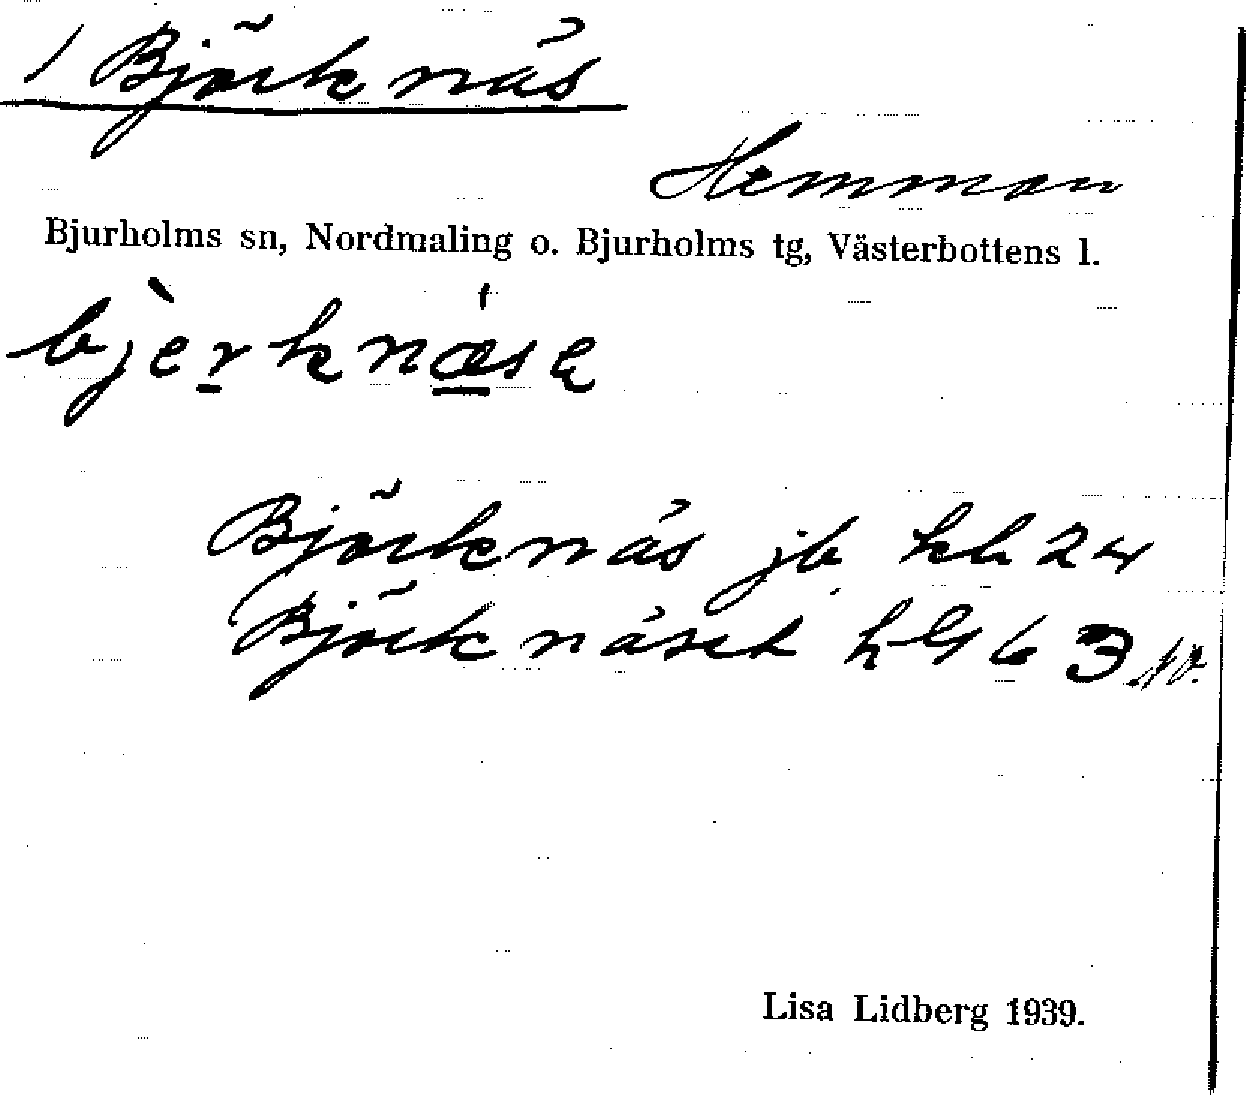 1 Björknäs
Hemman
Bjurholms sn, Nordmaling o. Bjurholms tg, Västerbottens l.
bjèrknæse
Björknäs jb kh 24
Björknäset hgb 3 NV.
Lisa Lidberg 1939.